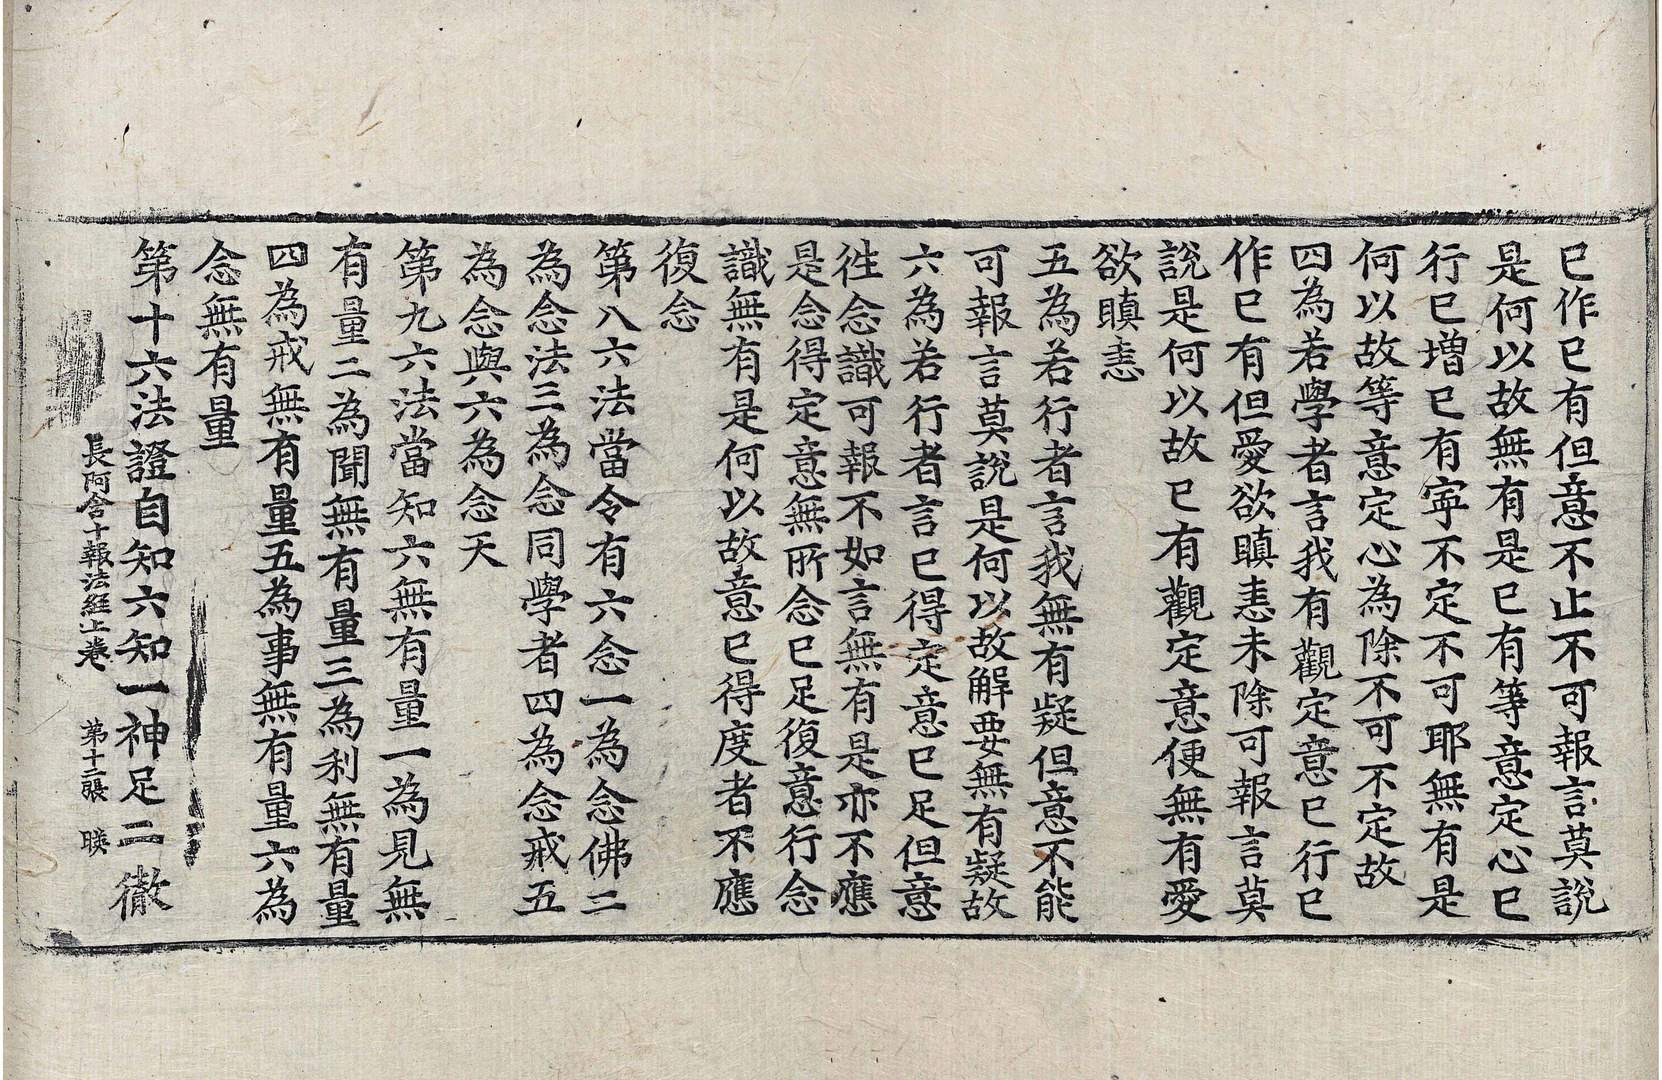 已作已有但意不止不可報言莫說
是何以故無有是已有等意定心已
行已增已有寜不定不可耶無有是
何以故等意定心為除不可不定故
四為若學者言我有觀定意已行已
作已有但愛欲瞋恚未除可報言莫
說是何以故已有觀定意便無有愛
欲瞋恚
五為若行者言我無有疑但意不能
可報言莫說是何以故解要無有疑故
六為若行者言已得定意已足但意
徃念識可報不如言無有是亦不應
是念得定意無所念已足復意行念
識無有是何以故意已得度者不應
復念
第八六法當令有六念一為念佛二
為念法三為念同學者四為念戒五
為念與六為念天
第九六法當知六無有量一為見無
有量二為聞無有量三為利無有量
四為戒無有量五為事無有量六為
念無有量
第十六法證自知六知一神足二徹
長阿含十報法經上卷 第十二張 暎